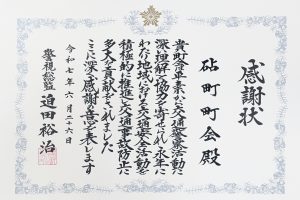 感謝状
砧町町会殿
貴町会は平素から交通警察活動に
深い理解と協力を寄せられ永年に
わたり地域における交通安全活動を
積極的に推進し交通事故防止に
多大な貢献をされました
ここに深く感謝の意を表します
令和七年六月二六日
警視総監 迫田裕治